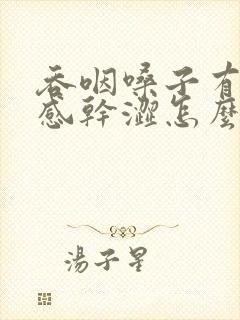 吞咽嗓子有
感幹澀怎麼
湯子星